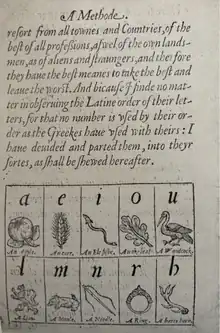 A Methode.
resort from all townes and Countries, of the
best of all professions, aswel of the own lands-
men, as of aliens and straungers, and therfore
they haue the best meanes to take the best and
leaue the worst. And bicause I finde no mat-
ter in obseruing the Latine order of their let-
ters, for that no number is vsed by their or-
der as the Greekes haue vsed with theirs: I
haue deuided and parted them, into theyr
sortes, as shall be shewed hereafter.
a e i o u
An Apple. An eare. An Ele fishe. An oke leaf. A Woodcock.
l m n r h
A Lion. A Mouse. A Needle. A Ring. A hunts horn.